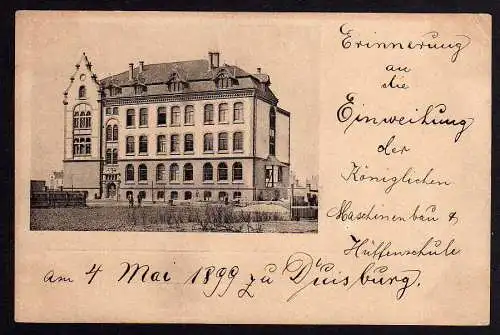 Erinnerung
an
die
Einweihung
der
Königlichen
Maschinenbau &
Hüttenschule
am 4 Mai 1899 zu Duisburg.